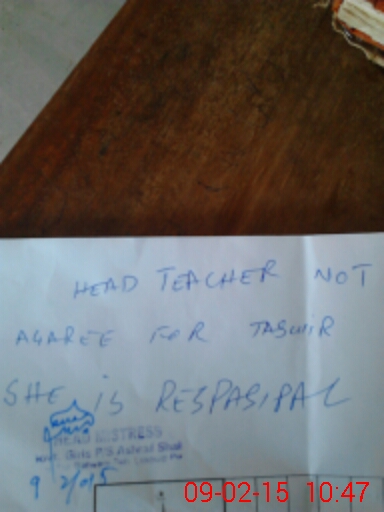 HEAD TEACHER NOT
AGAREE FOR TASWIR
SHE IS RESPASIPAL
HEAD MISTRESS
Govt. Girls P/S Ashraf Shah
9 2/015
09-02-15 10:47